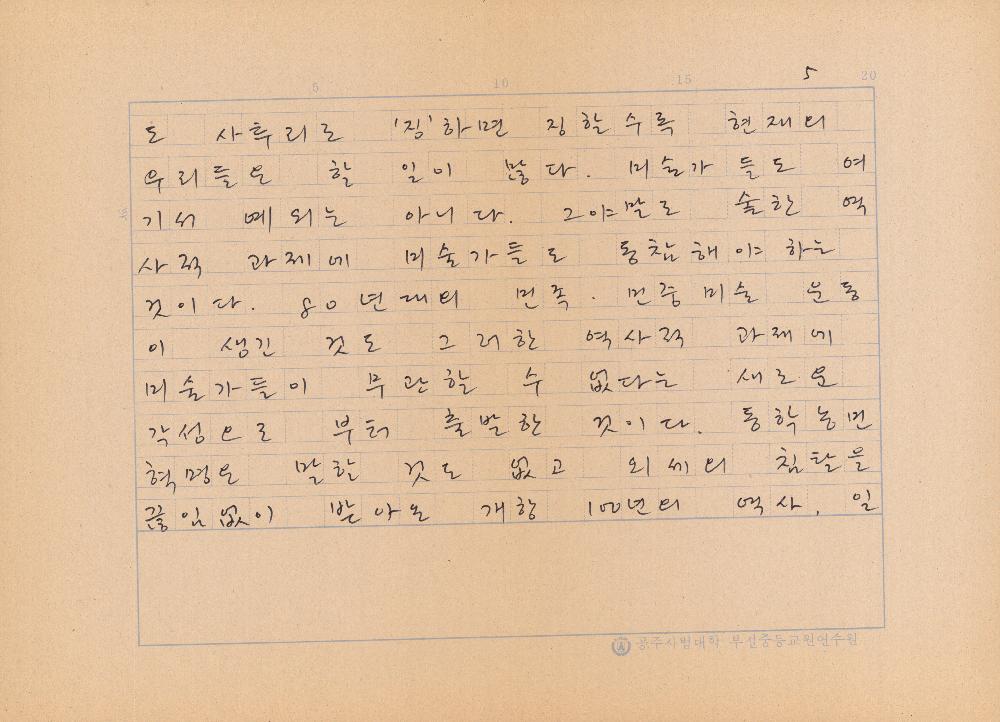 5 10 15 5 20
도 사투리로 '징'하면 징할수록 현재의
우리들은 할 일이 많다. 미술가들도 여
기서 예외는 아니다. 그야말로 숱한 역
사적 과제에 미술가들도 동참해야 하는
것이다. 80년대의 민족·민중미술 운동
이 생긴 것도 그러한 역사적 과제에
미술가들이 무관할 수 없다는 새로운
각성으로 부터 출발한 것이다. 동학농민
혁명은 말할 것도 없고 외세의 침탈을
끊임없이 받아온 개항 100년의 역사, 일
공주사범대학 부설중등교원연수원